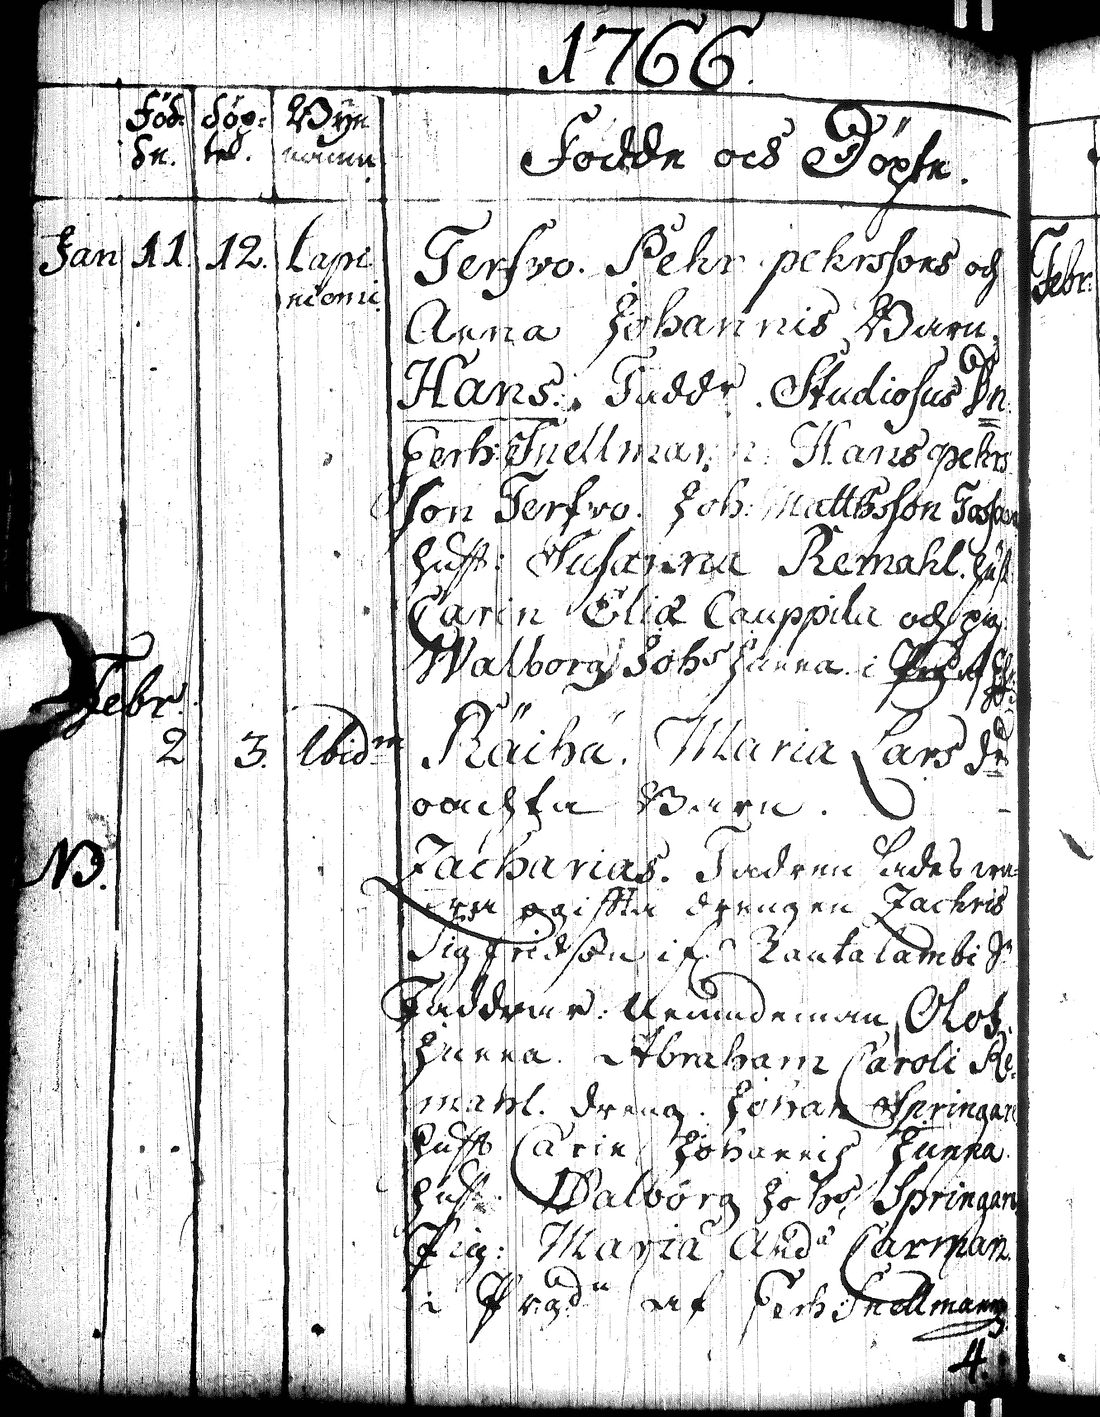 1766.
Föd: Döp: Byn
de. ted. namn.
Födde och Döpte.
Jan 11. 12. Lapi Tersvo. Pehr pehrssons och
niemi. Anna Johannis Barn.
Hans. Faddr. Studiosus Dn.
Ferh: Snellman. Hans pehrs
son Tersvo. Joh: Mattsson
hust: Susanna Remahl. hust
Carin Eliæ Cauppila och pig
Walborg Johs Junna. i
Febr.
2 3. Ibidm Räihä. Maria Lars dr
oächta Barn.
NB. Zacharias. Fadren lades wa-
ra ogiffta drengen Zachris
Sigfridson if. Rautalambi Sn
Faddrar: Nemndeman Olof
Junna. Abraham Caroli Re-
mahl. dreng. Johan Springar
hust Carin Johannis Junna.
hust. Walborg Johs Springar
Pig: Maria Ands Carman.
i Prgdn af Ferh: Snellman
4.
Febr: